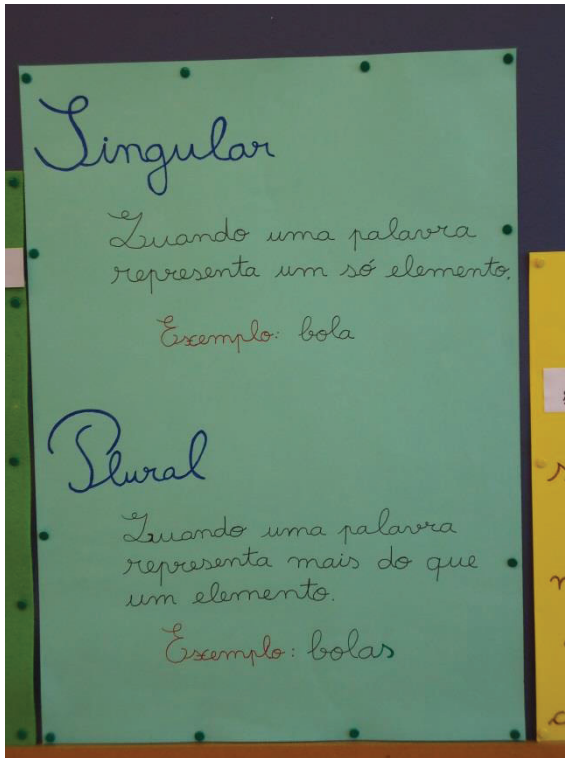 Singular
Quando uma palavra
representa um só elemento.
Exemplo: bola
Plural
Quando uma palavra
representa mais do que
um elemento.
Exemplo: bolas